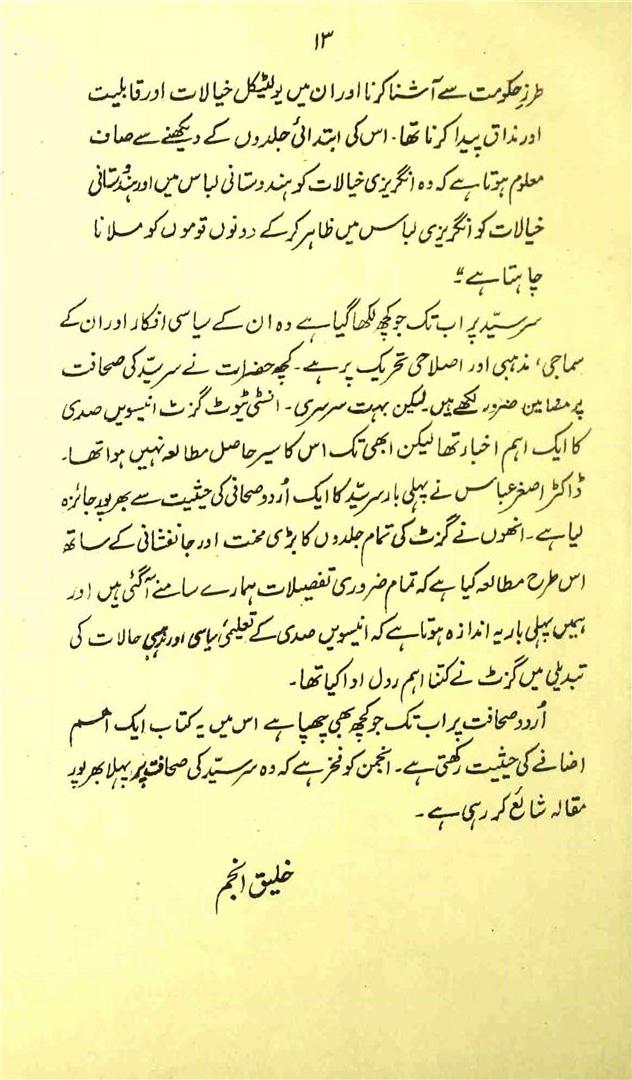 ۱۳
طرزِ حکومت سے آشنا کرنا اور ان میں پولٹیکل خیالات اور قابلیت
اور مذاق پیدا کرنا تھا۔ اس کی ابتدائی جلدوں کے دیکھنے سے صاف
معلوم ہوتا ہے کہ وہ انگریزی خیالات کو ہندوستانی لباس میں اور ہندوستانی
خیالات کو انگریزی لباس میں ظاہر کرکے دونوں قوموں کو ملانا
چاہتا ہے“
سرسیّد پر اب تک جو کچھ لکھا گیا ہے وہ ان کے سیاسی افکار اور ان کے
سماجی، مذہبی اور اصلاحی تحریک پر ہے۔ کچھ حضرات نے سرسیّد کی صحافت
پر مضامین ضرور لکھے ہیں۔ لیکن بہت سرسری۔ انسٹی ٹیوٹ گزٹ انیسویں صدی
کا ایک اہم اخبار تھا لیکن ابھی تک اس کا سیر حاصل مطالعہ نہیں ہوا تھا۔
ڈاکٹر اصغر عباس نے پہلی بار سرسیّد کا ایک اُردو صحافی کی حیثیت سے بھرپور جائزہ
لیا ہے۔ انھوں نے گزٹ کی تمام جلدوں کا بڑی محنت اور جانفشانی کے ساتھ
اس طرح مطالعہ کیا ہے کہ تمام ضروری تفصیلات ہمارے سامنے آگئی ہیں اور
ہمیں پہلی بار یہ اندازہ ہوتا ہے کہ انیسویں صدی کے تعلیمی، سیاسی اور مذہبی حالات کی
تبدیلی میں گزٹ نے کتنا اہم رول ادا کیا تھا۔
اُردو صحافت پر اب تک جو کچھ بھی چھپا ہے اس میں یہ کتاب ایک اہم
اضافے کی حیثیت رکھتی ہے۔ انجمن کو فخر ہے کہ وہ سرسیّد کی صحافت پر پہلا بھرپور
مقالہ شائع کر رہی ہے۔
خلیق انجم